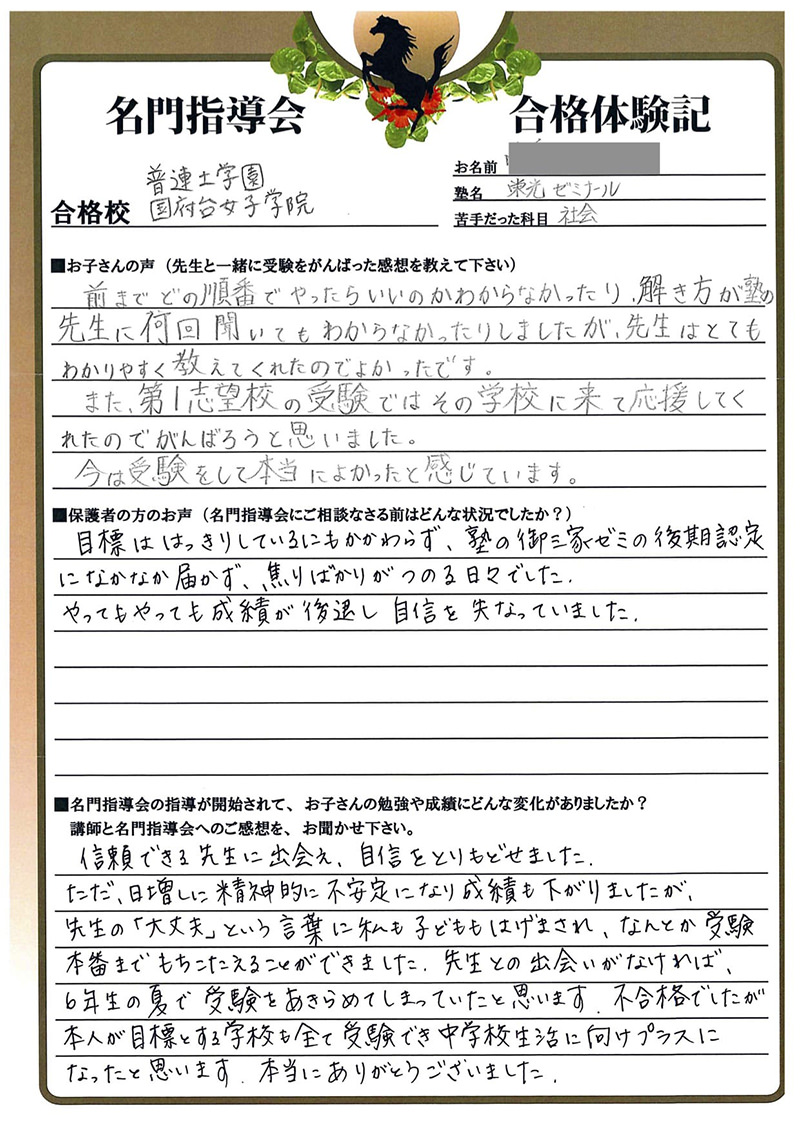 名門指導会
合格体験記
お名前
塾名 栄光ゼミナール
苦手だった科目 社会
合格校 普連土学園
国府台女子学院
■お子さんの声（先生と一緒に受験をがんばった感想を教えて下さい）
前までどの順番でやったらいいのかわからなかったり、解き方が塾の
先生に何回聞いてもわからなかったりしましたが、先生はとても
わかりやすく教えてくれたのでよかったです。
また、第1志望校の受験ではその学校に来て応援してく
れたのでがんばろうと思いました。
今は受験をして本当によかったと感じています。
■保護者の方のお声（名門指導会にご相談なさる前はどんな状況でしたか？）
目標ははっきりしているにもかかわらず、塾の御三家ゼミの後期認定
になかなか届かず、焦りばかりがつのる日々でした.
やってもやっても成績が後退し自信を失なっていました.
■名門指導会の指導が開始されて、お子さんの勉強や成績にどんな変化がありましたか？
講師と名門指導会へのご感想を、お聞かせ下さい。
信頼できる先生に出会え、自信をとりもどせました.
ただ、日増しに精神的に不安定になり成績も下がりましたが、
先生の「大丈夫」という言葉に私も子どももはげまされ、なんとか受験
本番までもちこたえることができました. 先生との出会いがなければ、
6年生の夏で受験をあきらめてしまっていたと思います. 不合格でしたが
本人が目標とする学校も全て受験でき中学校生活に向けプラスに
なったと思います. 本当にありがとうございました.